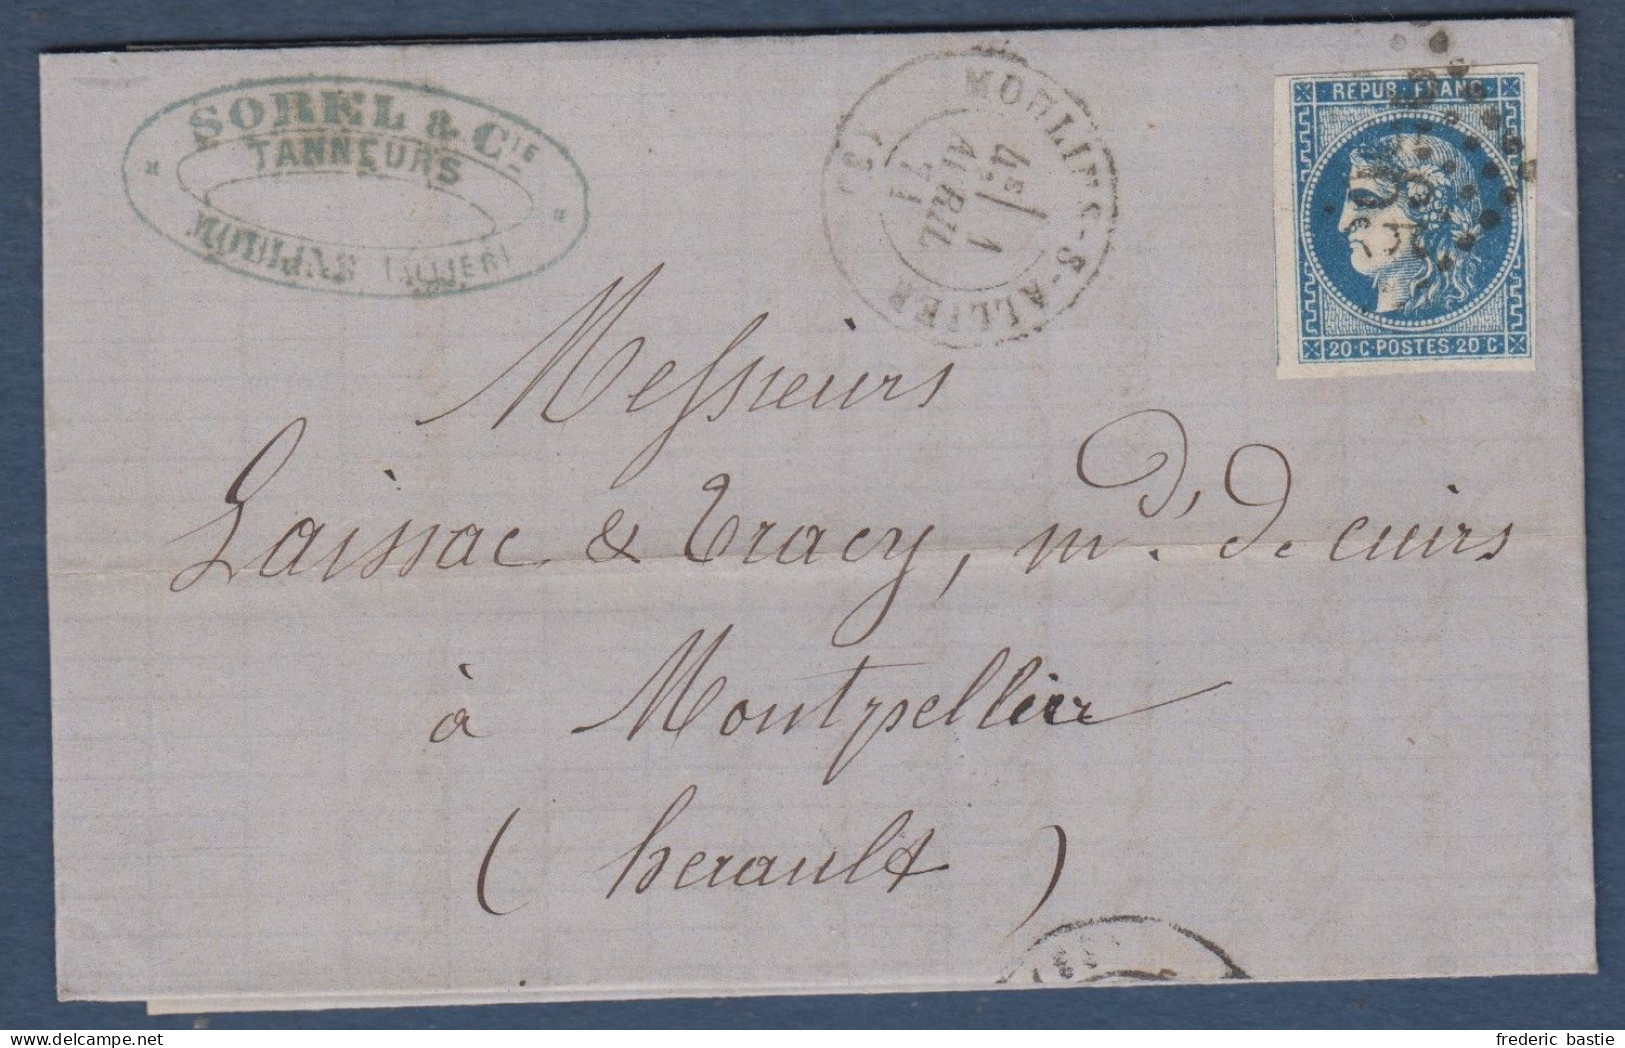 SOREL & CIE
TANNEURS
MOULINS (ALLIER)
MOULINS-S-ALLIER
4E/ 1
AVRIL
71
(3)
REPUB. FRANC.
20 C. POSTES 20 C.
Messieurs
Laissac & Tracy, md. de cuirs
à Montpellier
(herault)
delcampe.net
frederic bastie